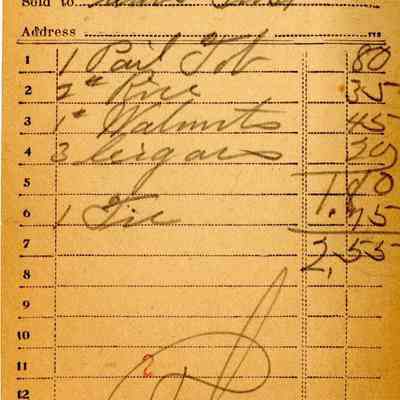 Sold to
Address
1 1 Pail Tob 80
2 2# Rice 35
3 1# Walnuts 45
4 3 Cigars 20
5 1.80
6 1 Tie .75
7 2.55
8
9
10
11 2
12